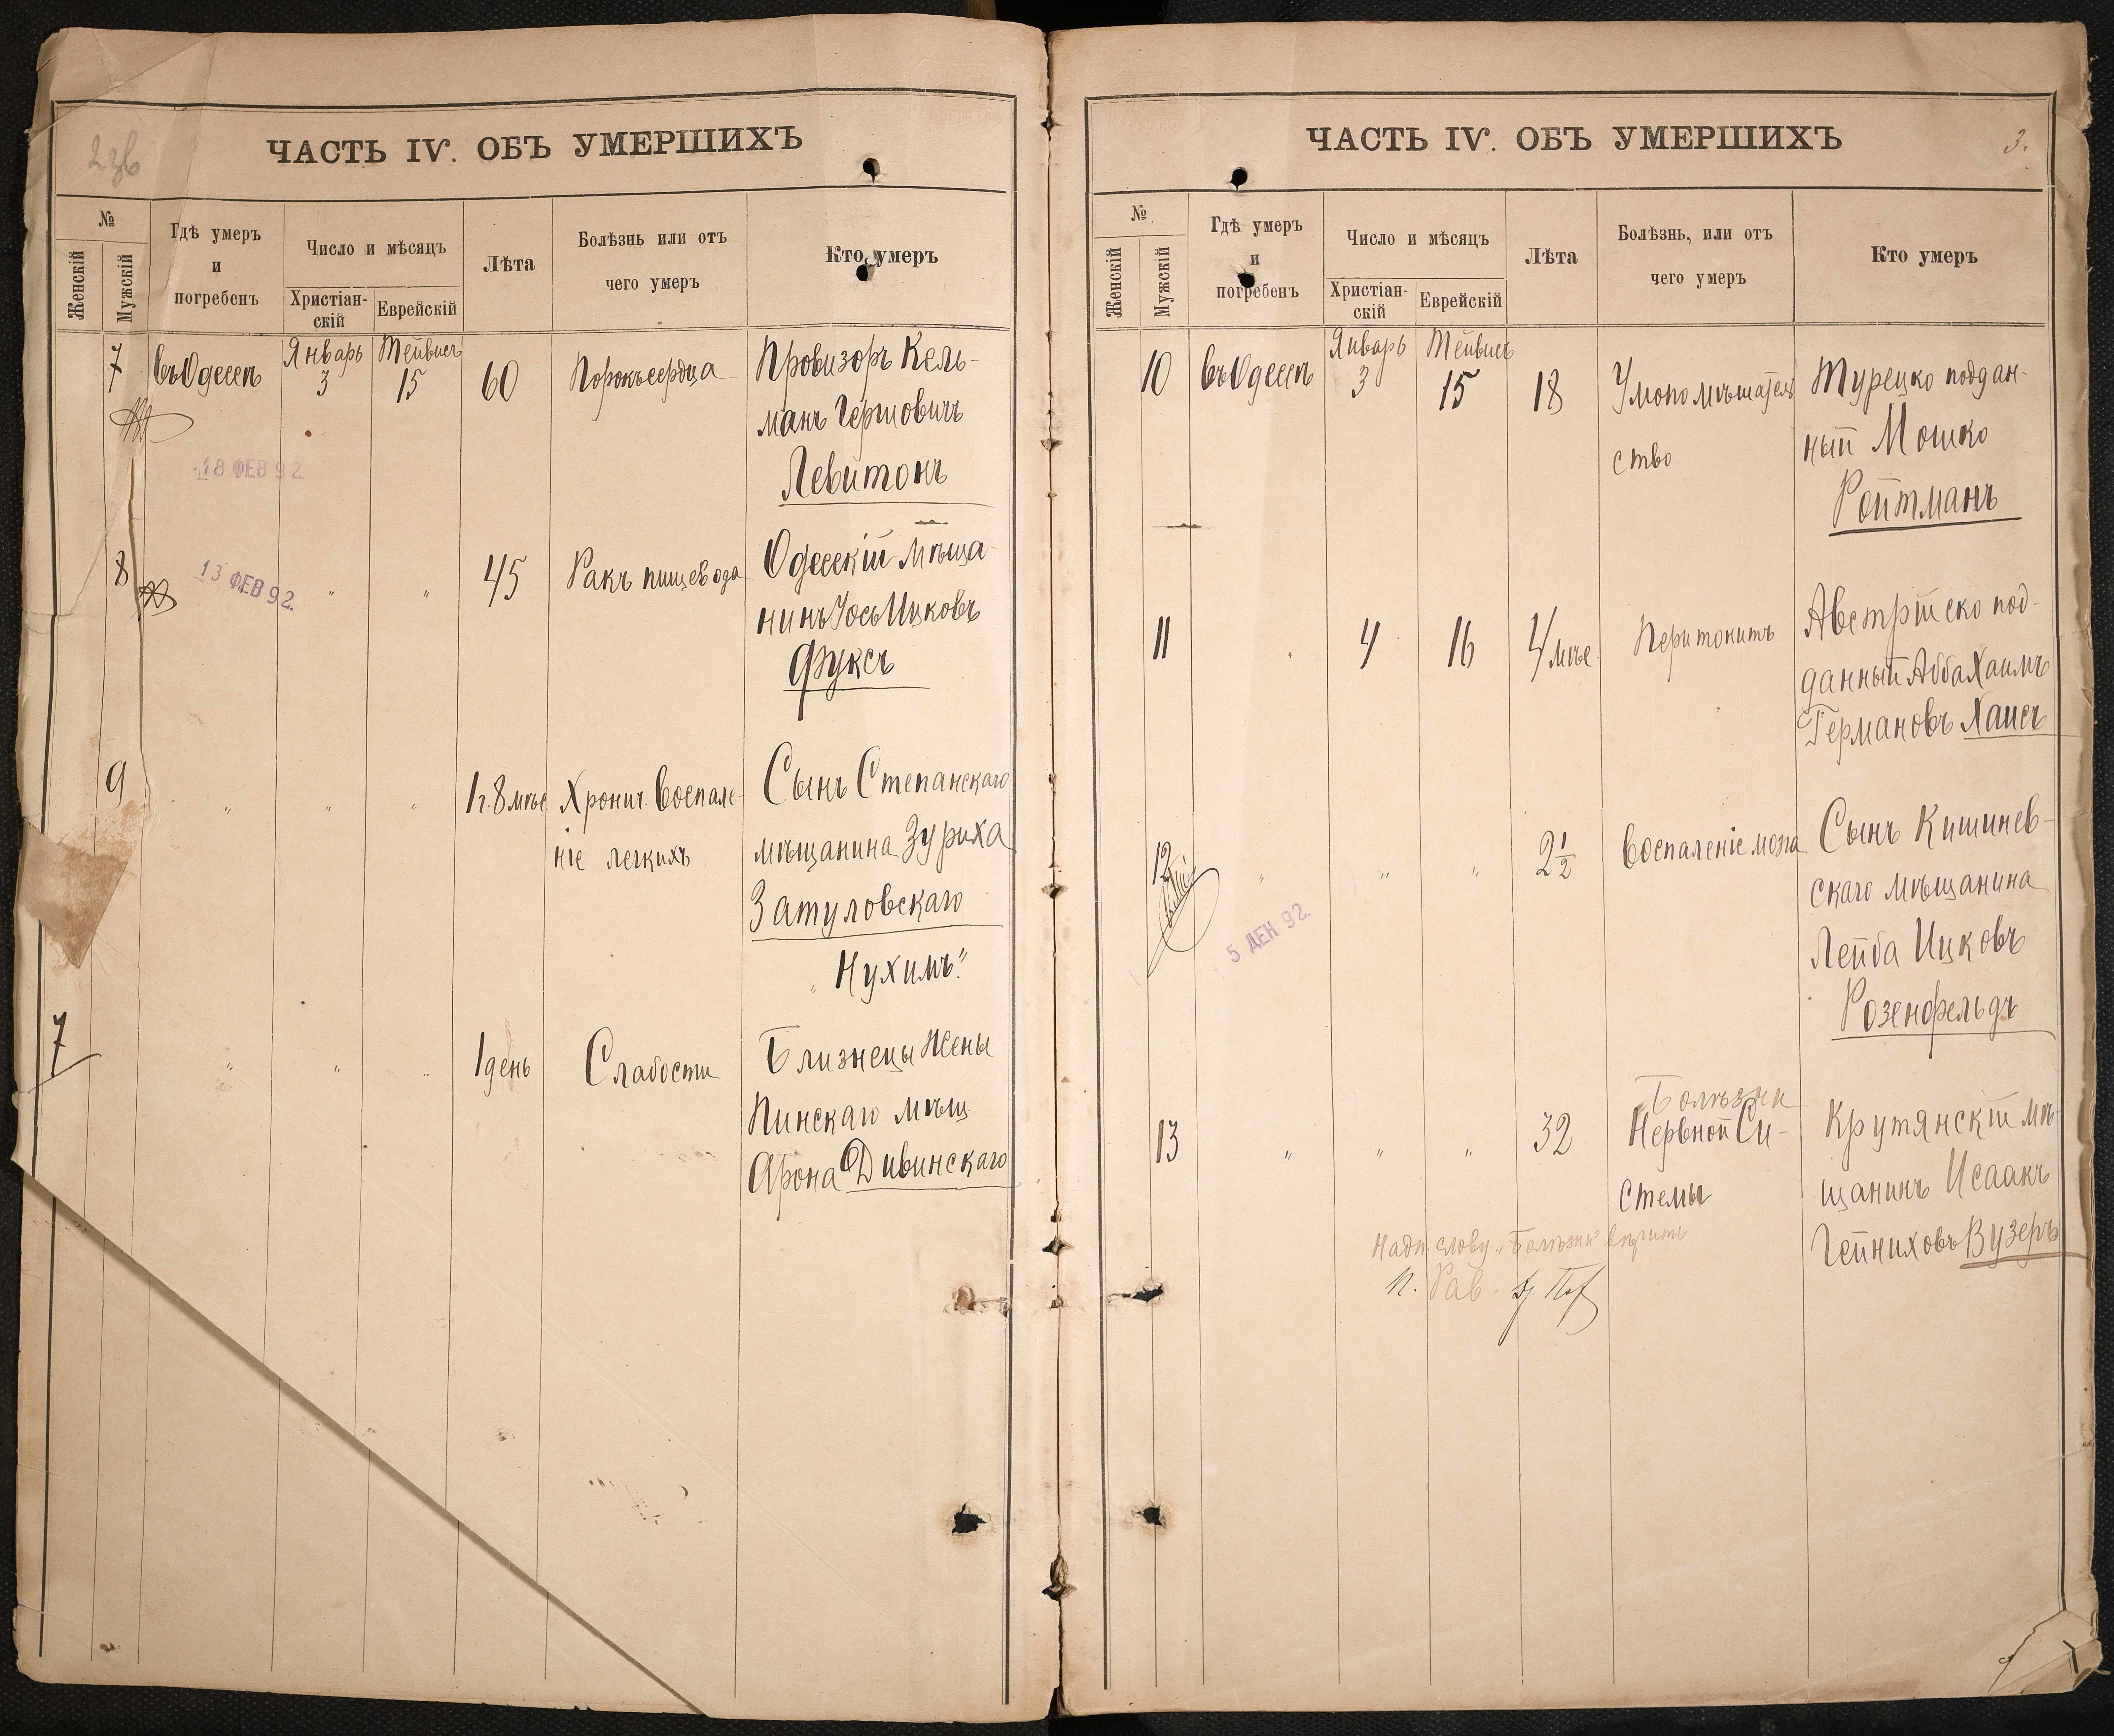 236
ЧАСТЬ IV. ОБЪ УМЕРШИХЪ
№
Женскій
Мужскій
Гдѣ умеръ
и
погребенъ
Число и мѣсяцъ
Христіан-
скій
Еврейскій
Лѣта
Болѣзнь или отъ
чего умеръ
Кто умеръ
7
въ Одессѣ
Январь
3
Тейвисъ
15
60
Порокъ сердца
Провизоръ Кель-
манъ Гершовичъ
Левитонъ
18 ФЕВ 92
8
13 ФЕВ 92.
"
"
45
Ракъ пищевода
Одесскій мѣща-
нинъ Іось Ицковъ
Фуксъ
9
"
"
"
1 г. 8 мѣс
Хронич. Воспале-
ніе легкихъ
Сынъ Степанскаго
мѣщанина Зуриха
Затуловскаго
"Нухимъ"
7
"
"
"
1 день
Слабости
Близнецы жены
Пинскаго мѣщ.
Арона Дивинскаго
ЧАСТЬ IV. ОБЪ УМЕРШИХЪ
3.
№
Женскій
Мужскій
Гдѣ умеръ
и
погребенъ
Число и мѣсяцъ
Христіан-
скій
Еврейскій
Лѣта
Болѣзнь, или отъ
чего умеръ
Кто умеръ
10
въ Одессѣ
Январь
3
Тейвисъ
15
18
Умопомѣшатель
ство
Турецко поддан-
ный Мошко
Ройтманъ
11
"
4
16
4 мѣс
Перитонитъ
Австрійско под-
данный Абба Хаимъ
Германовъ Хаисъ
12
"
"
"
2 1/2
Воспаленіе мозга
Сынъ Кишинев-
скаго мѣщанина
Лейба Ицковъ
Розенфельдъ
5 ДЕН 92.
13
"
"
"
32
Болѣзни
Нервной Си-
стемы
Крутянскій мѣ-
щанинъ Исаакъ
Гейниховъ Вузеръ
Надп. слову "Болѣзни" вѣрить
И. Рав.